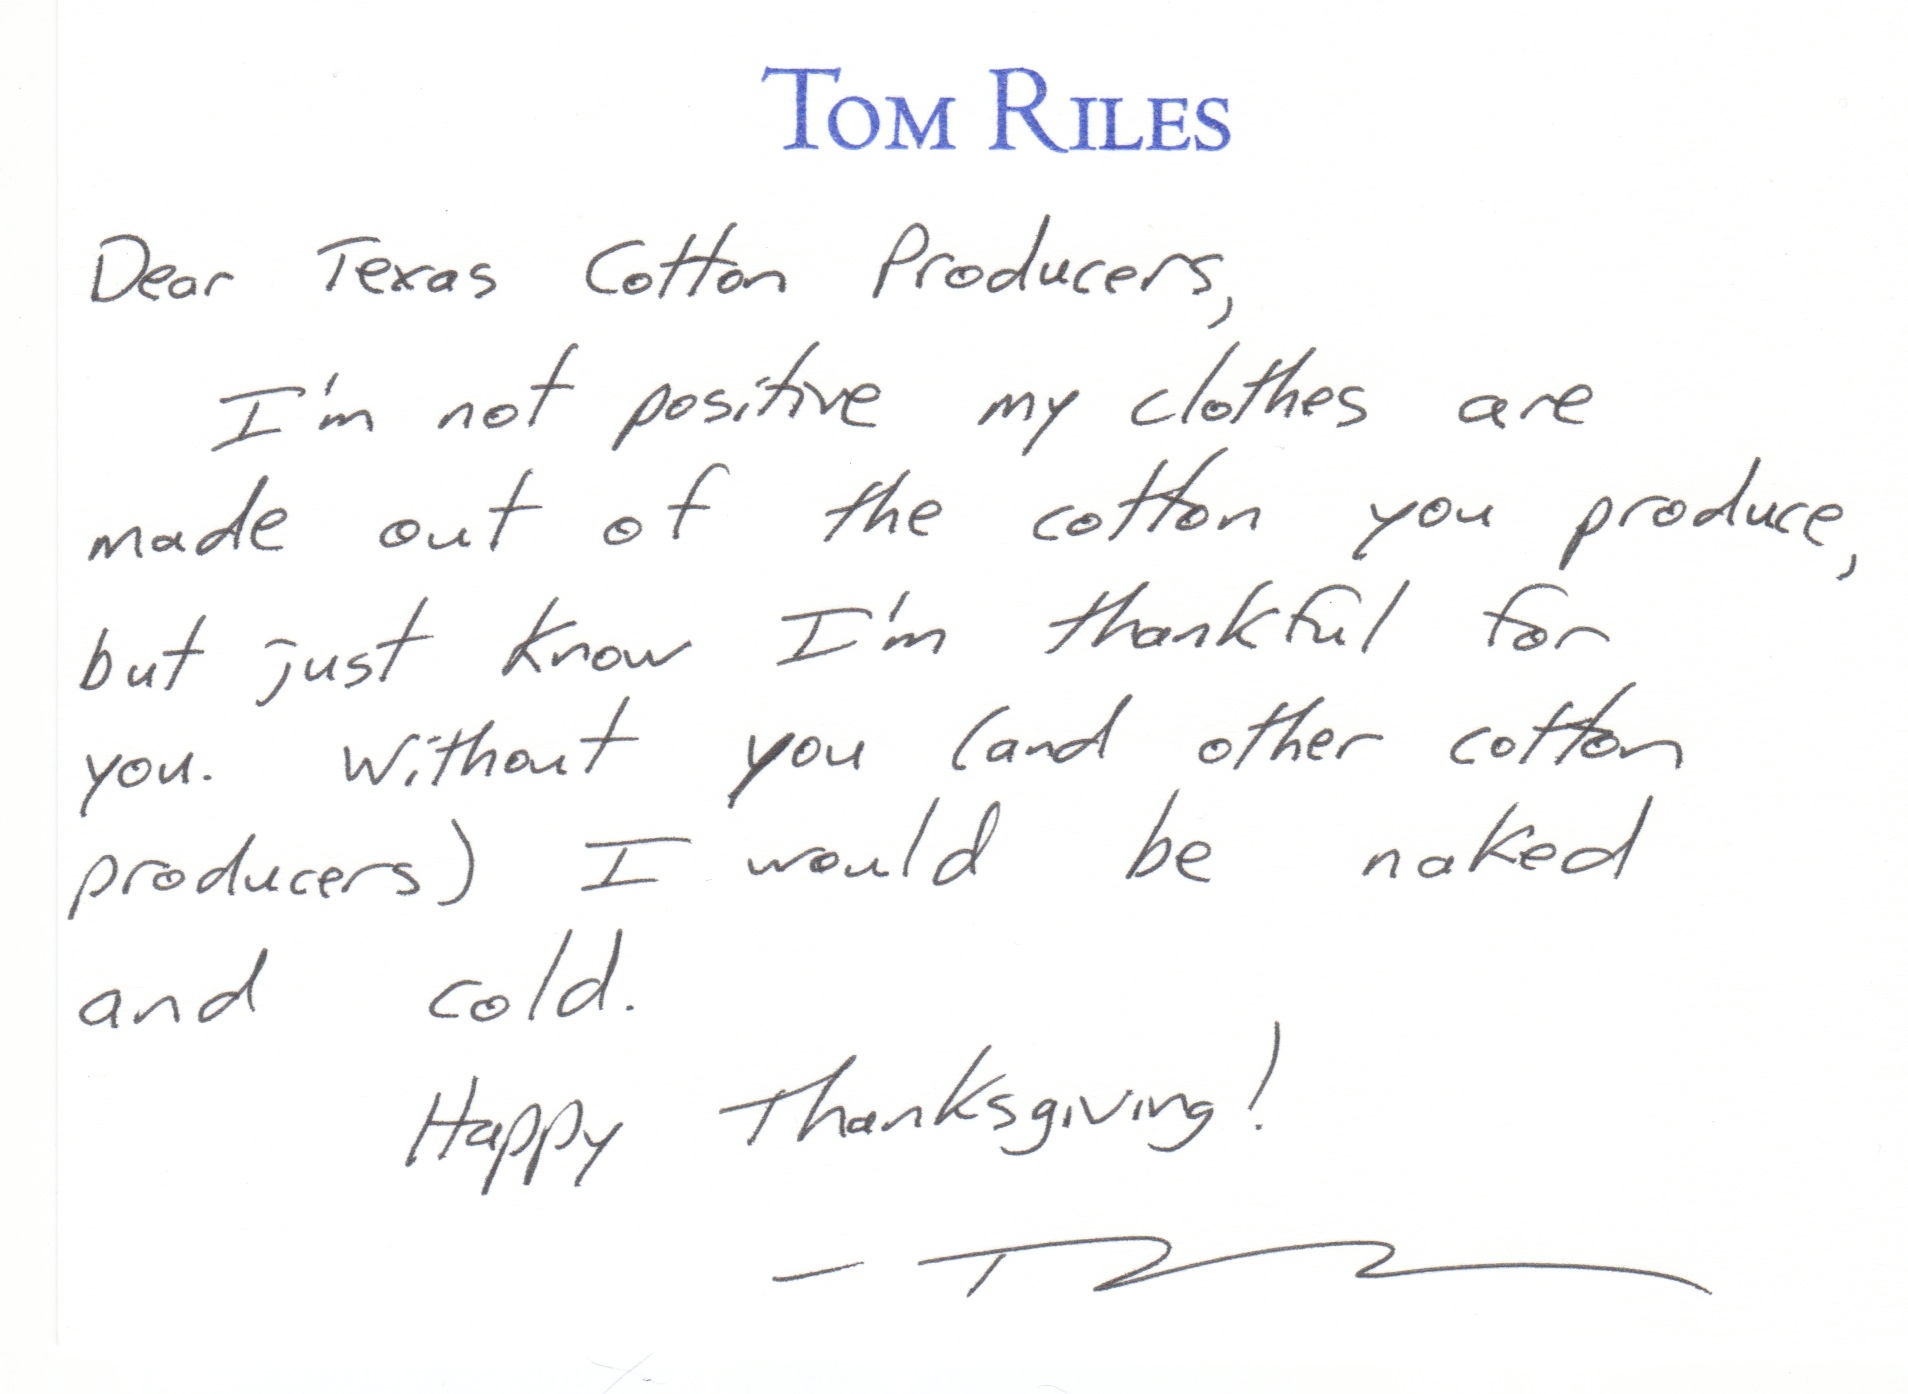 TOM RILES
Dear Texas Cotton Producers,
I'm not positive my clothes are
made out of the cotton you produce,
but just know I'm thankful for
you. Without you (and other cotton
producers) I would be naked
and cold.
Happy Thanksgiving!